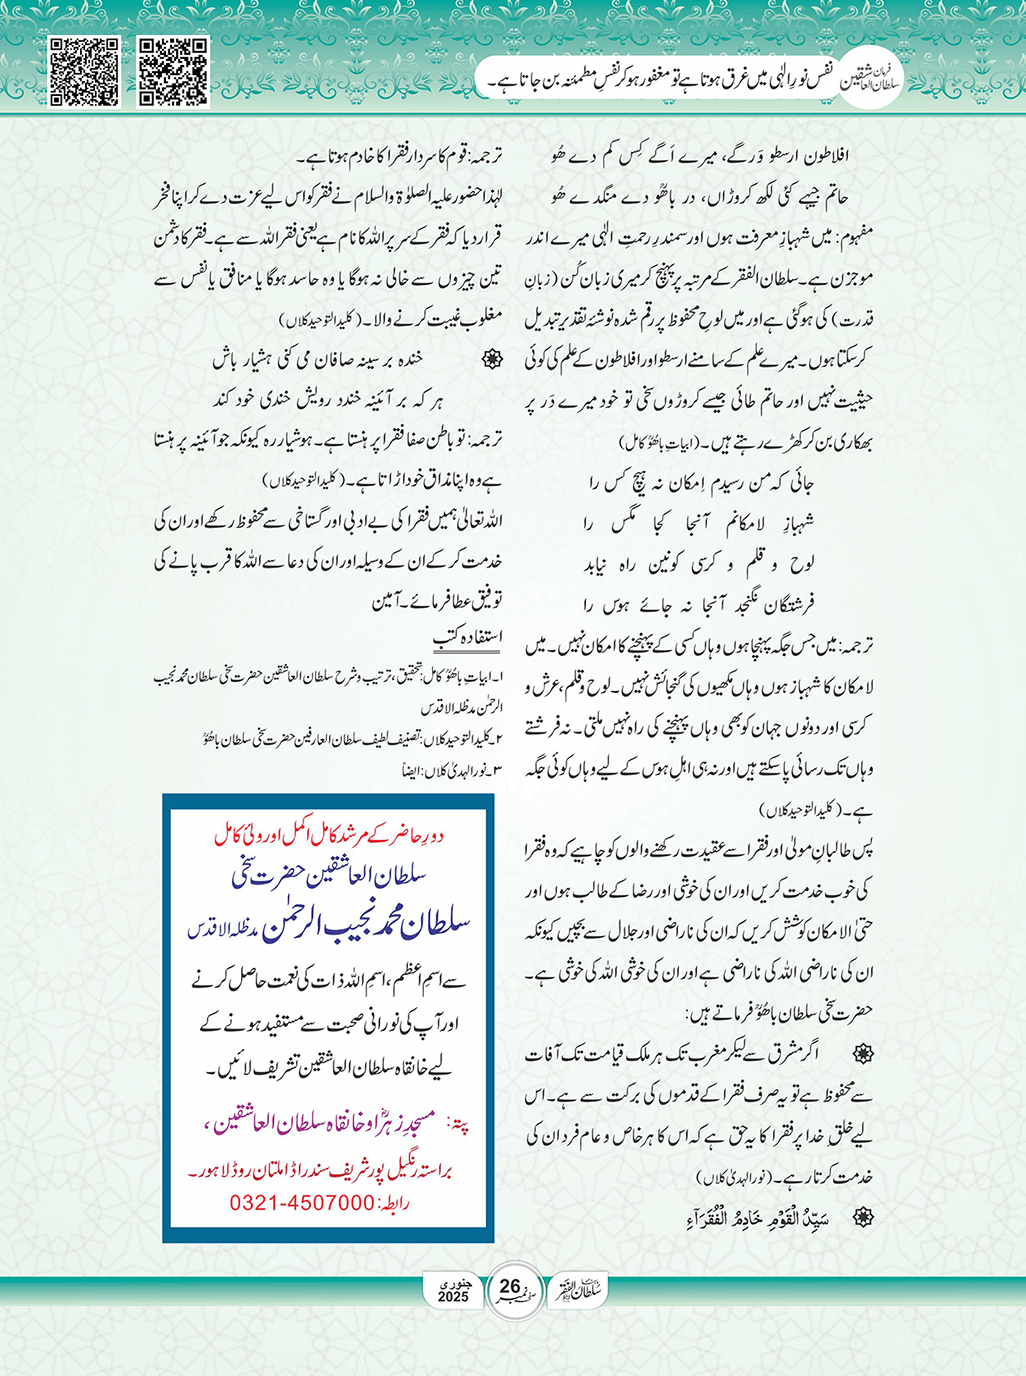 فرمان سلطان العاشقین
نفس نورِ الٰہی میں غرق ہوتا ہے تو مغفور ہو کر نفسِ مطمئنہ بن جاتا ہے۔
افلاطون ارسطو وَرگے، میرے اَگے کِس کم دے ھُو
حاتم جیہے کئی لکھ کروڑاں، در باھُوؒ دے منگدے ھُو
مفہوم: میں شہبازِ معرفت ہوں اور سمندرِ رحمتِ الٰہی میرے اندر
موجزن ہے۔ سلطان الفقر کے مرتبہ پر پہنچ کر میری زبان کُن (زبانِ
قدرت) کی ہو گئی ہے اور میں لوحِ محفوظ پر رقم شدہ نوشتۂ تقدیر تبدیل
کر سکتا ہوں۔ میرے علم کے سامنے ارسطو اور افلاطون کے علم کی کوئی
حیثیت نہیں اور حاتم طائی جیسے کروڑوں سخی تو خود میرے دَر پر
بھکاری بن کر کھڑے رہتے ہیں۔ (ابیاتِ باھُوؒ کامل)
جائی کہ من رسیدم اِمکان نہ ہیچ کس را
شہبازِ لامکانم آنجا کجا مگس را
لوح و قلم و کرسی کونین راہ نیابد
فرشتگان نگنجد آنجا نہ جائے ہوس را
ترجمہ: میں جس جگہ پہنچا ہوں وہاں کسی کے پہنچنے کا امکان نہیں۔ میں
لامکان کا شہباز ہوں وہاں مکھیوں کی گنجائش نہیں۔ لوح و قلم، عرش و
کرسی اور دونوں جہان کو بھی وہاں پہنچنے کی راہ نہیں ملتی۔ نہ فرشتے
وہاں تک رسائی پا سکتے ہیں اور نہ ہی اہلِ ہوس کے لیے وہاں کوئی جگہ
ہے۔ (کلید التوحید کلاں)
پس طالبانِ مولیٰ اور فقرا سے عقیدت رکھنے والوں کو چاہیے کہ وہ فقرا
کی خوب خدمت کریں اور ان کی خوشی اور رضا کے طالب ہوں اور
حتیٰ الامکان کوشش کریں کہ ان کی ناراضی اور جلال سے بچیں کیونکہ
ان کی ناراضی اللہ کی ناراضی ہے اور ان کی خوشی اللہ کی خوشی ہے۔
حضرت سخی سلطان باھُوؒ فرماتے ہیں:
اگر مشرق سے لیکر مغرب تک ہر ملک قیامت تک آفات
سے محفوظ ہے تو یہ صرف فقرا کے قدموں کی برکت سے ہے۔ اس
لیے خلقِ خدا پر فقرا کا یہ حق ہے کہ اس کا ہر خاص و عام فرد ان کی
خدمت کرتا رہے۔ (نور الہدیٰ کلاں)
سَیِّدُ الْقَوْمِ خَادِمُ الْفُقَرَآءِ
ترجمہ: قوم کا سردار فقرا کا خادم ہوتا ہے۔
لہٰذا حضور علیہ الصلوٰۃ والسلام نے فقر کو اس لیے عزت دے کر اپنا فخر
قرار دیا کہ فقر کے سر پر اللہ کا نام ہے یعنی فقر اللہ سے ہے۔ فقر کا دشمن
تین چیزوں سے خالی نہ ہوگا یا وہ حاسد ہوگا یا منافق یا نفس سے
مغلوب غیبت کرنے والا۔ (کلید التوحید کلاں)
خندہ بر سینہ صافان می کنی ہشیار باش
ہر کہ بر آئینہ خندد رویش خندی خود کند
ترجمہ: تو باطن صفا فقرا پر ہنستا ہے۔ ہوشیار رہ کیونکہ جو آئینہ پر ہنستا
ہے وہ اپنا مذاق خود اڑاتا ہے۔ (کلید التوحید کلاں)
اللہ تعالیٰ ہمیں فقرا کی بے ادبی اور گستاخی سے محفوظ رکھے اور ان کی
خدمت کر کے ان کے وسیلہ اور ان کی دعا سے اللہ کا قرب پانے کی
توفیق عطا فرمائے۔ آمین
استفادہ کتب
۱۔ ابیاتِ باھُوؒ کامل: تحقیق، ترتیب و شرح سلطان العاشقین حضرت سخی سلطان محمد نجیب
الرحمٰن مدظلہ الاقدس
۲۔ کلید التوحید کلاں: تصنیفِ لطیف سلطان العارفین حضرت سخی سلطان باھُوؒ
۳۔ نور الہدیٰ کلاں: ایضاً
دورِ حاضر کے مرشد کامل اکمل اور ولیٔ کامل
سلطان العاشقین حضرت سخی
سلطان محمد نجیب الرحمٰن مدظلہ الاقدس
سے اسمِ اعظم، اسمِ اللہ ذات کی نعمت حاصل کرنے
اور آپ کی نورانی صحبت سے مستفید ہونے کے
لیے خانقاہ سلطان العاشقین تشریف لائیں۔
پتہ: مسجدِ زہراؓ و خانقاہ سلطان العاشقین،
براستہ رنگیل پور شریف سندر اڈا ملتان روڈ لاہور۔
رابطہ: 0321-4507000
سُلطان الفَقر
صفحہ نمبر 26
جنوری 2025